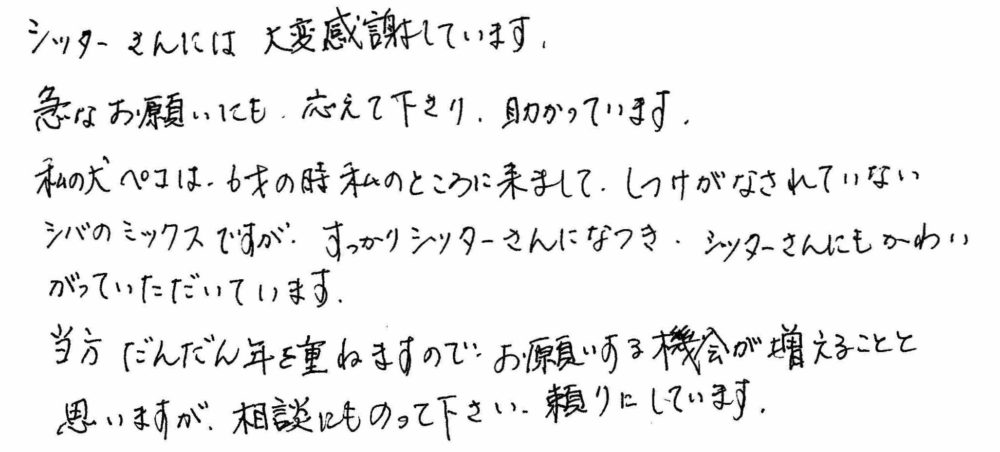 シッターさんには大変感謝しています。
急なお願いにも、応えて下さり、助かっています。
私の犬ペコは、6才の時私のところに来まして、しつけがなされていない
シバのミックスですが、すっかりシッターさんになつき、シッターさんにもかわい
がっていただいています。
当方だんだん年を重ねますので、お願いする機会が増えることと
思いますが、相談にものって下さい、頼りにしています。